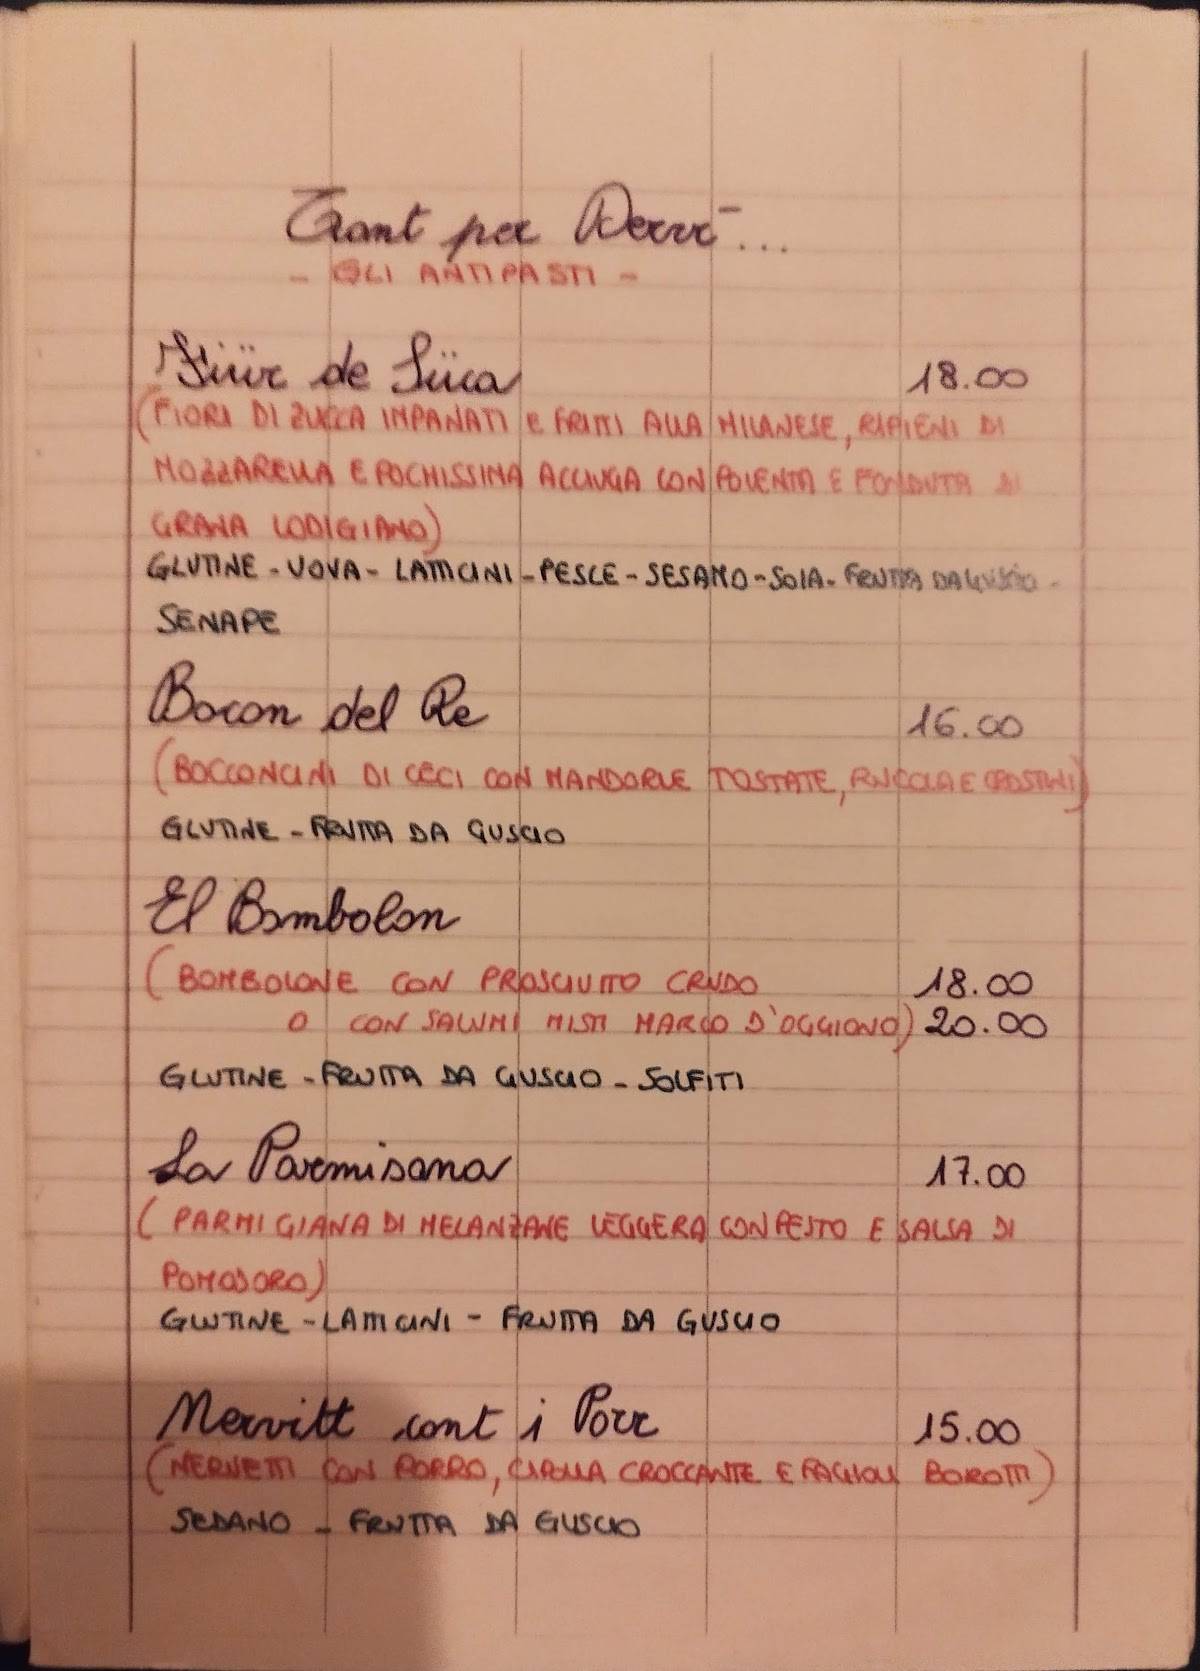 Tant per Dervì...
- GLI ANTIPASTI -
Fiüür de Süca 18.00
(FIORI DI ZUCCA IMPANATI E FRITTI ALLA MILANESE, RIPIENI DI
MOZZARELLA E POCHISSIMA ACCIUGA CON POLENTA E FONDUTA DI
GRANA LODIGIANO)
GLUTINE - UOVA - LATTICINI - PESCE - SESAMO - SOIA - FRUTTA DA GUSCIO -
SENAPE
Bocon del Re 16.00
(BOCCONCINI DI CECI CON MANDORLE TOSTATE, RUCOLA E CROSTINI)
GLUTINE - FRUTTA DA GUSCIO
El Bombolon
(BOMBOLONE CON PROSCIUTTO CRUDO 18.00
O CON SALUMI MISTI MARCO D'OGGIONO) 20.00
GLUTINE - FRUTTA DA GUSCIO - SOLFITI
La Parmisana 17.00
(PARMIGIANA DI MELANZANE LEGGERA CON PESTO E SALSA DI
POMODORO)
GLUTINE - LATTICINI - FRUTTA DA GUSCIO
Nervitt cont i Porr 15.00
(NERVETTI CON PORRO, CIPOLLA CROCCANTE E FAGIOLI BOROTTI)
SEDANO - FRUTTA DA GUSCIO